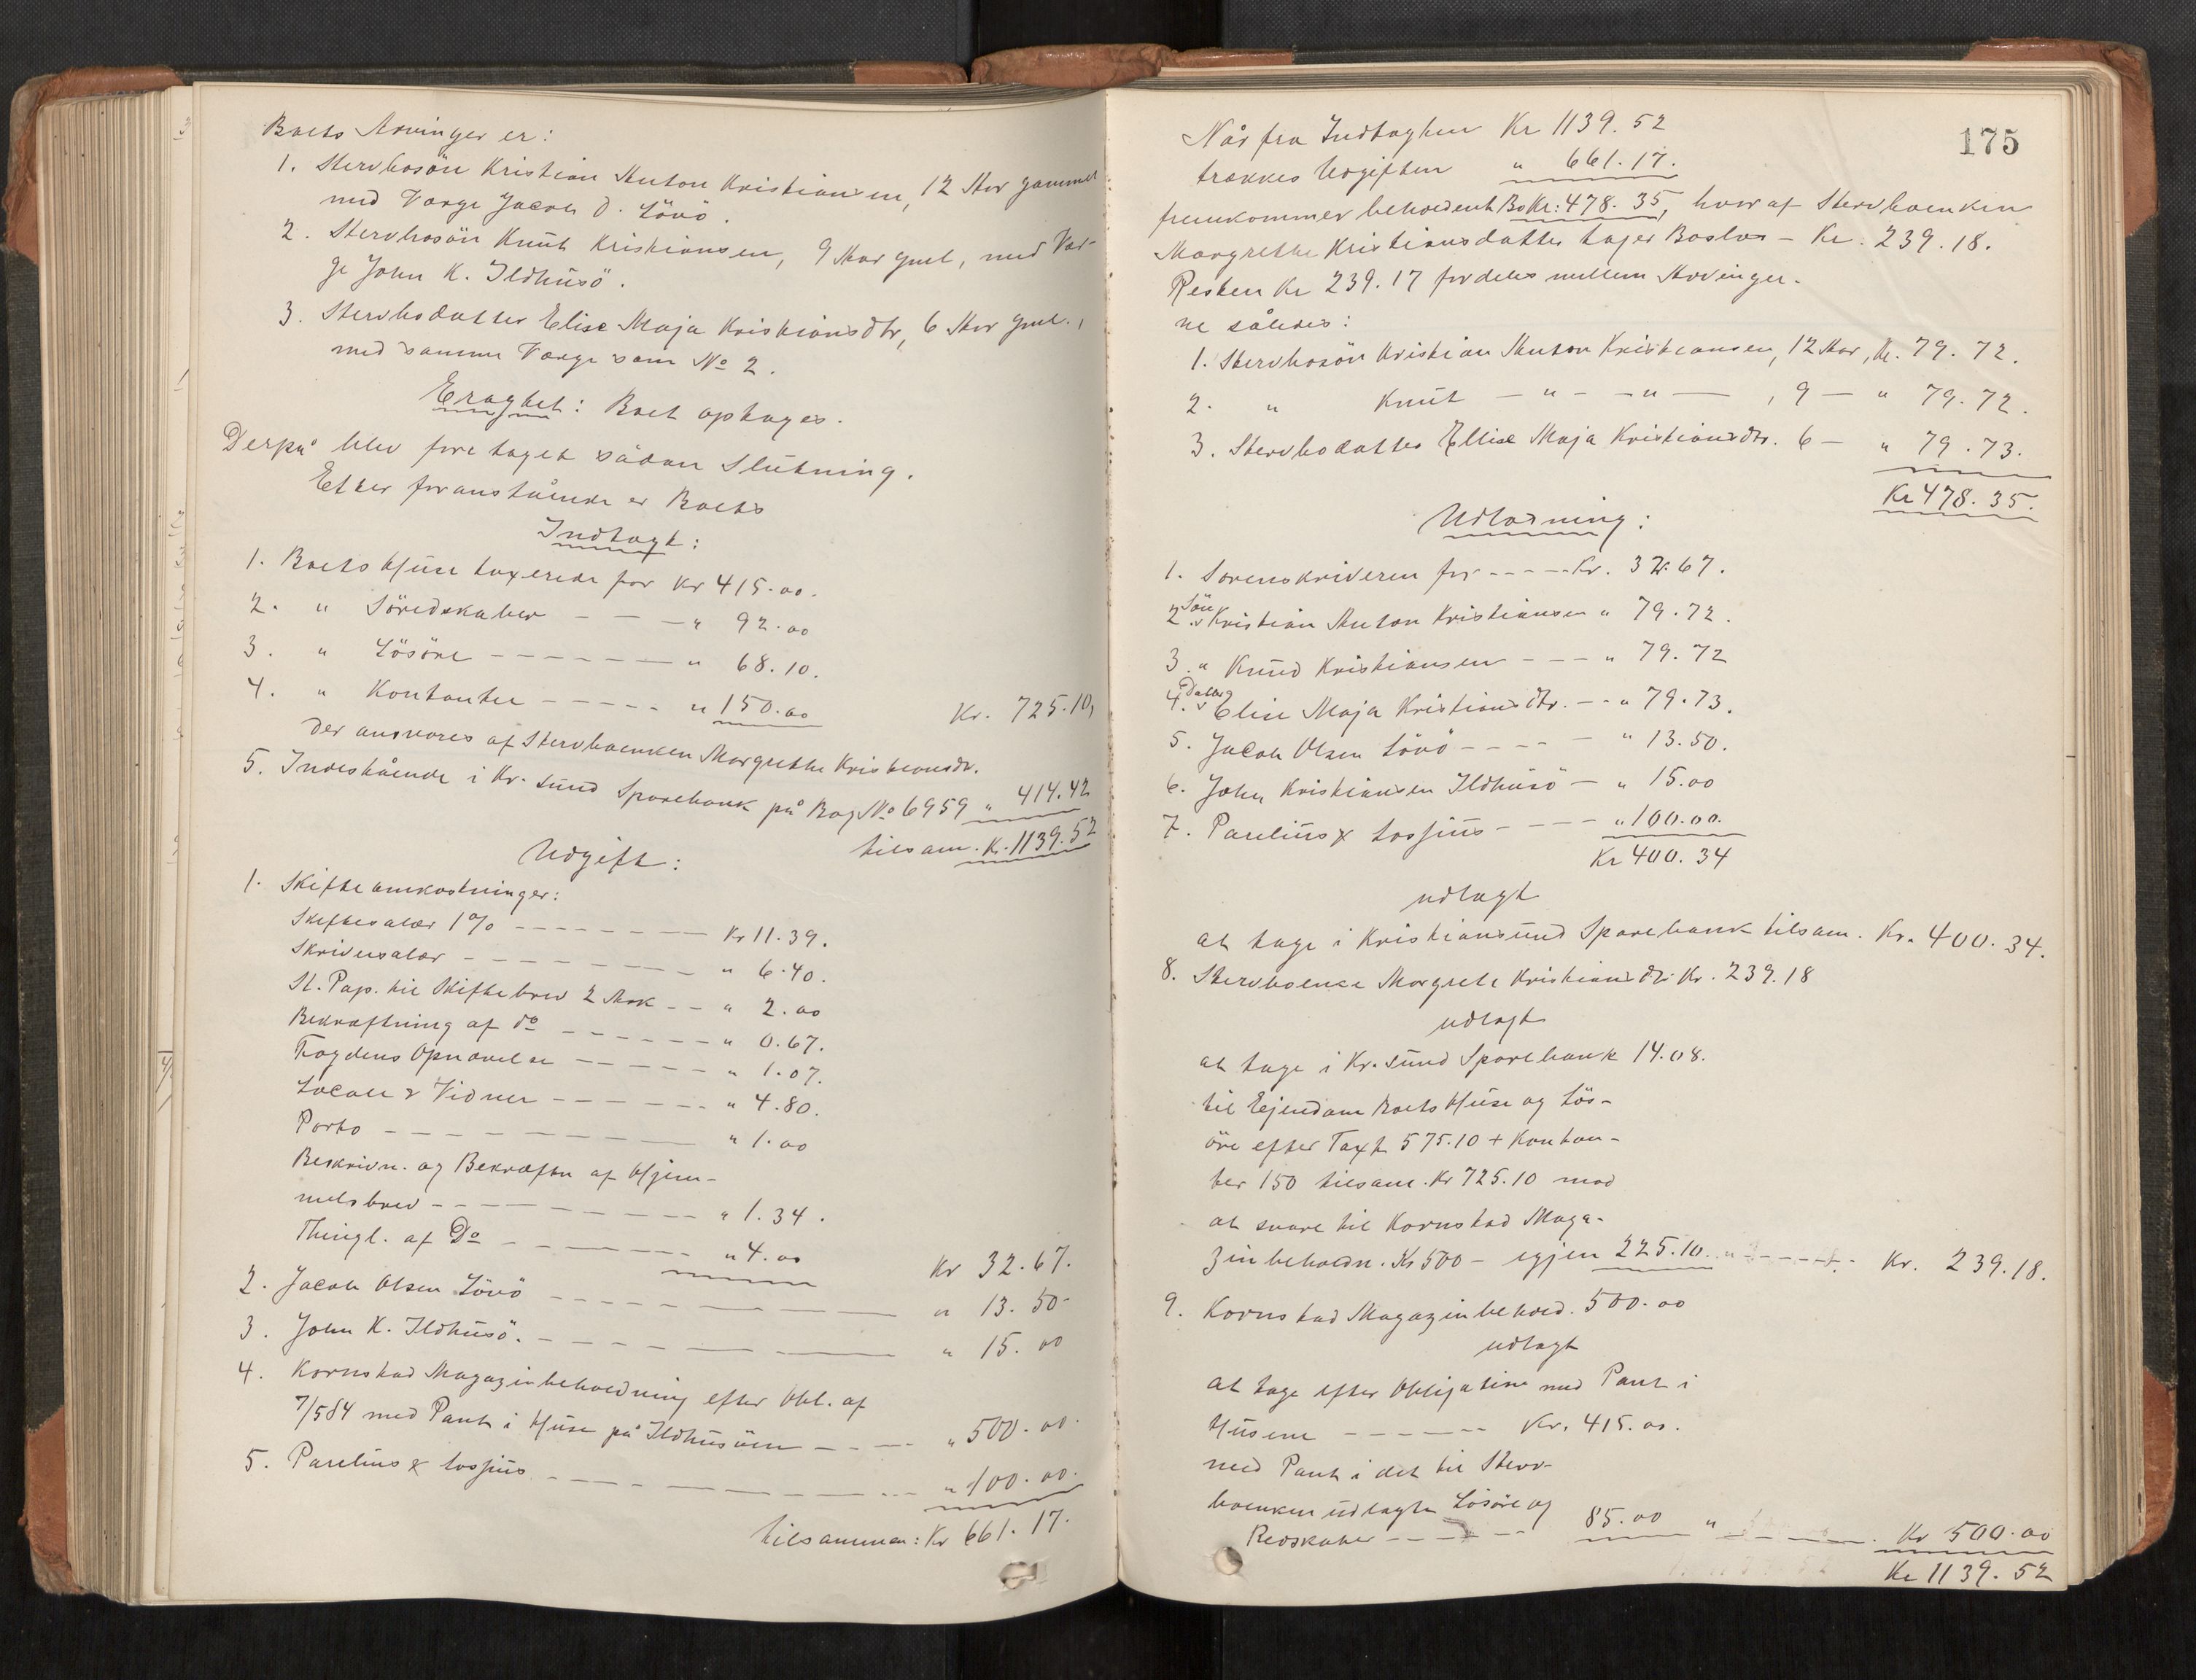 Boets Arvinger er:
1. Stervbosön Kristian Anton Kristiansen, 12 Aar gammel
med Værge Jacob O. Lövö.
2. Stervbosön Knut Kristiansen, 9 Aar gml, med Vær-
ge John K. Ildhusö.
3. Stervbodatter Elise Maja Kristiansdtr, 6 Aar gml.,
med samme Værge som No 2.
Eragtet: Boet optages.
Derpå blev foretaget sådan Slutning.
Efter foranstående er Boets
Indtægt:
1. Boets Huse taxerede for Kr 415.00.
2. " Söredskaber - - - " 92.00
3. " Lösöre - - - - - - " 68.10.
4. " Kontanter - - - - - " 150.00 Kr. 725.10,
der ansvares af Stervboenken Margrethe Kristiansdr.
5. Indestående i Kr.sund Sparebank på Bog No 6959 " 414.42
tilsam. Kr. 1139.52
Udgift:
1. Skifteomkostninger:
Skiftesalær 1% - - - - - - - Kr 11.39.
Skriversalær - - - - - - - - " 6.40.
St. Pap. til Skiftebrev 2 Ark - - " 2.00
Bekræftning af do - - - - - - " 0.67.
Fogdens Opnævelse - - - - - " 1.07.
Locale & Vidner - - - - - - " 4.80.
Porto - - - - - - - - - " 1.00
Beskrivn. og Bekræftn af Hjem-
melsbrev - - - - - - - - - " 1.34.
Thingl. af Do - - - - - - - " 4.00 Kr 32.67.
2. Jacob Olsen Lövö - - - - - - - - " 13.50
3. John K. Ildhusö. - - - - - - - " 15.00
4. Kornstad Magazinbeholdning efter Obl. af
7/5 84 med Pant i Huse på Ildhusöen - - - - " 500.00
5. Parelius & Lossius - - - - - - - " 100.00.
tilsammen: Kr 661.17.
175
Når fra Indtægten Kr 1139.52
trækkes Udgiften " 661.17.
fremkommer beholdent Bo Kr: 478.35, hvoraf Stervboenken
Margrethe Kristiansdatter tager Boslod - Kr. 239.18.
Resten Kr 239.17 fordeles mellem Arvinger-
ne således:
1. Stervbosön Kristian Anton Kristiansen, 12 Aar, Kr. 79.72.
2. " Knut - " - - " - , 9 - " 79.72.
3. Stervbodatter Ellise Maja Kristiansdtr. 6 - " 79.73.
Kr 478.35.
Udlodning:
1. Sorenskriveren for - - - - Kr. 32.67.
2. Sön Kristian Anton Kristiansen " 79.72.
3. " Knud Kristiansen - - - " 79.72
4. Datter Elise Maja Kristiansdtr. - - " 79.73.
5. Jacob Olsen Lövö - - - - - " 13.50.
6. John Kristiansen Ildhusö - " 15.00
7. Parelius & Lossius - - - - " 100.00.
Kr 400.34
udlagt
at tage i Kristiansund Sparebank tilsam. Kr. 400.34.
8. Stervboenke Margrete Kristiansdr. Kr. 239.18
udlagt
at tage i Kr.sund Sparebank 14.08.
til Ejendom Boets Huse og Lös-
öre efter Taxt 575.10 + Kontan-
ter 150 tilsam. Kr 725.10 mod
at svare til Kornstad Maga-
zinbeholdn. Kr 500 - igjen 225.10. " - - - - - Kr. 239.18.
9. Kornstad Magazinbehold. 500.00
udlagt
at tage efter Obligation med Pant i
Husene - - - - - - Kr. 415.00.
med Pant i det til Sterv-
boenken udlagte Lösöre og
Redskaber - - - - - 85.00 " - - - - Kr 500.00
Kr 1139.52